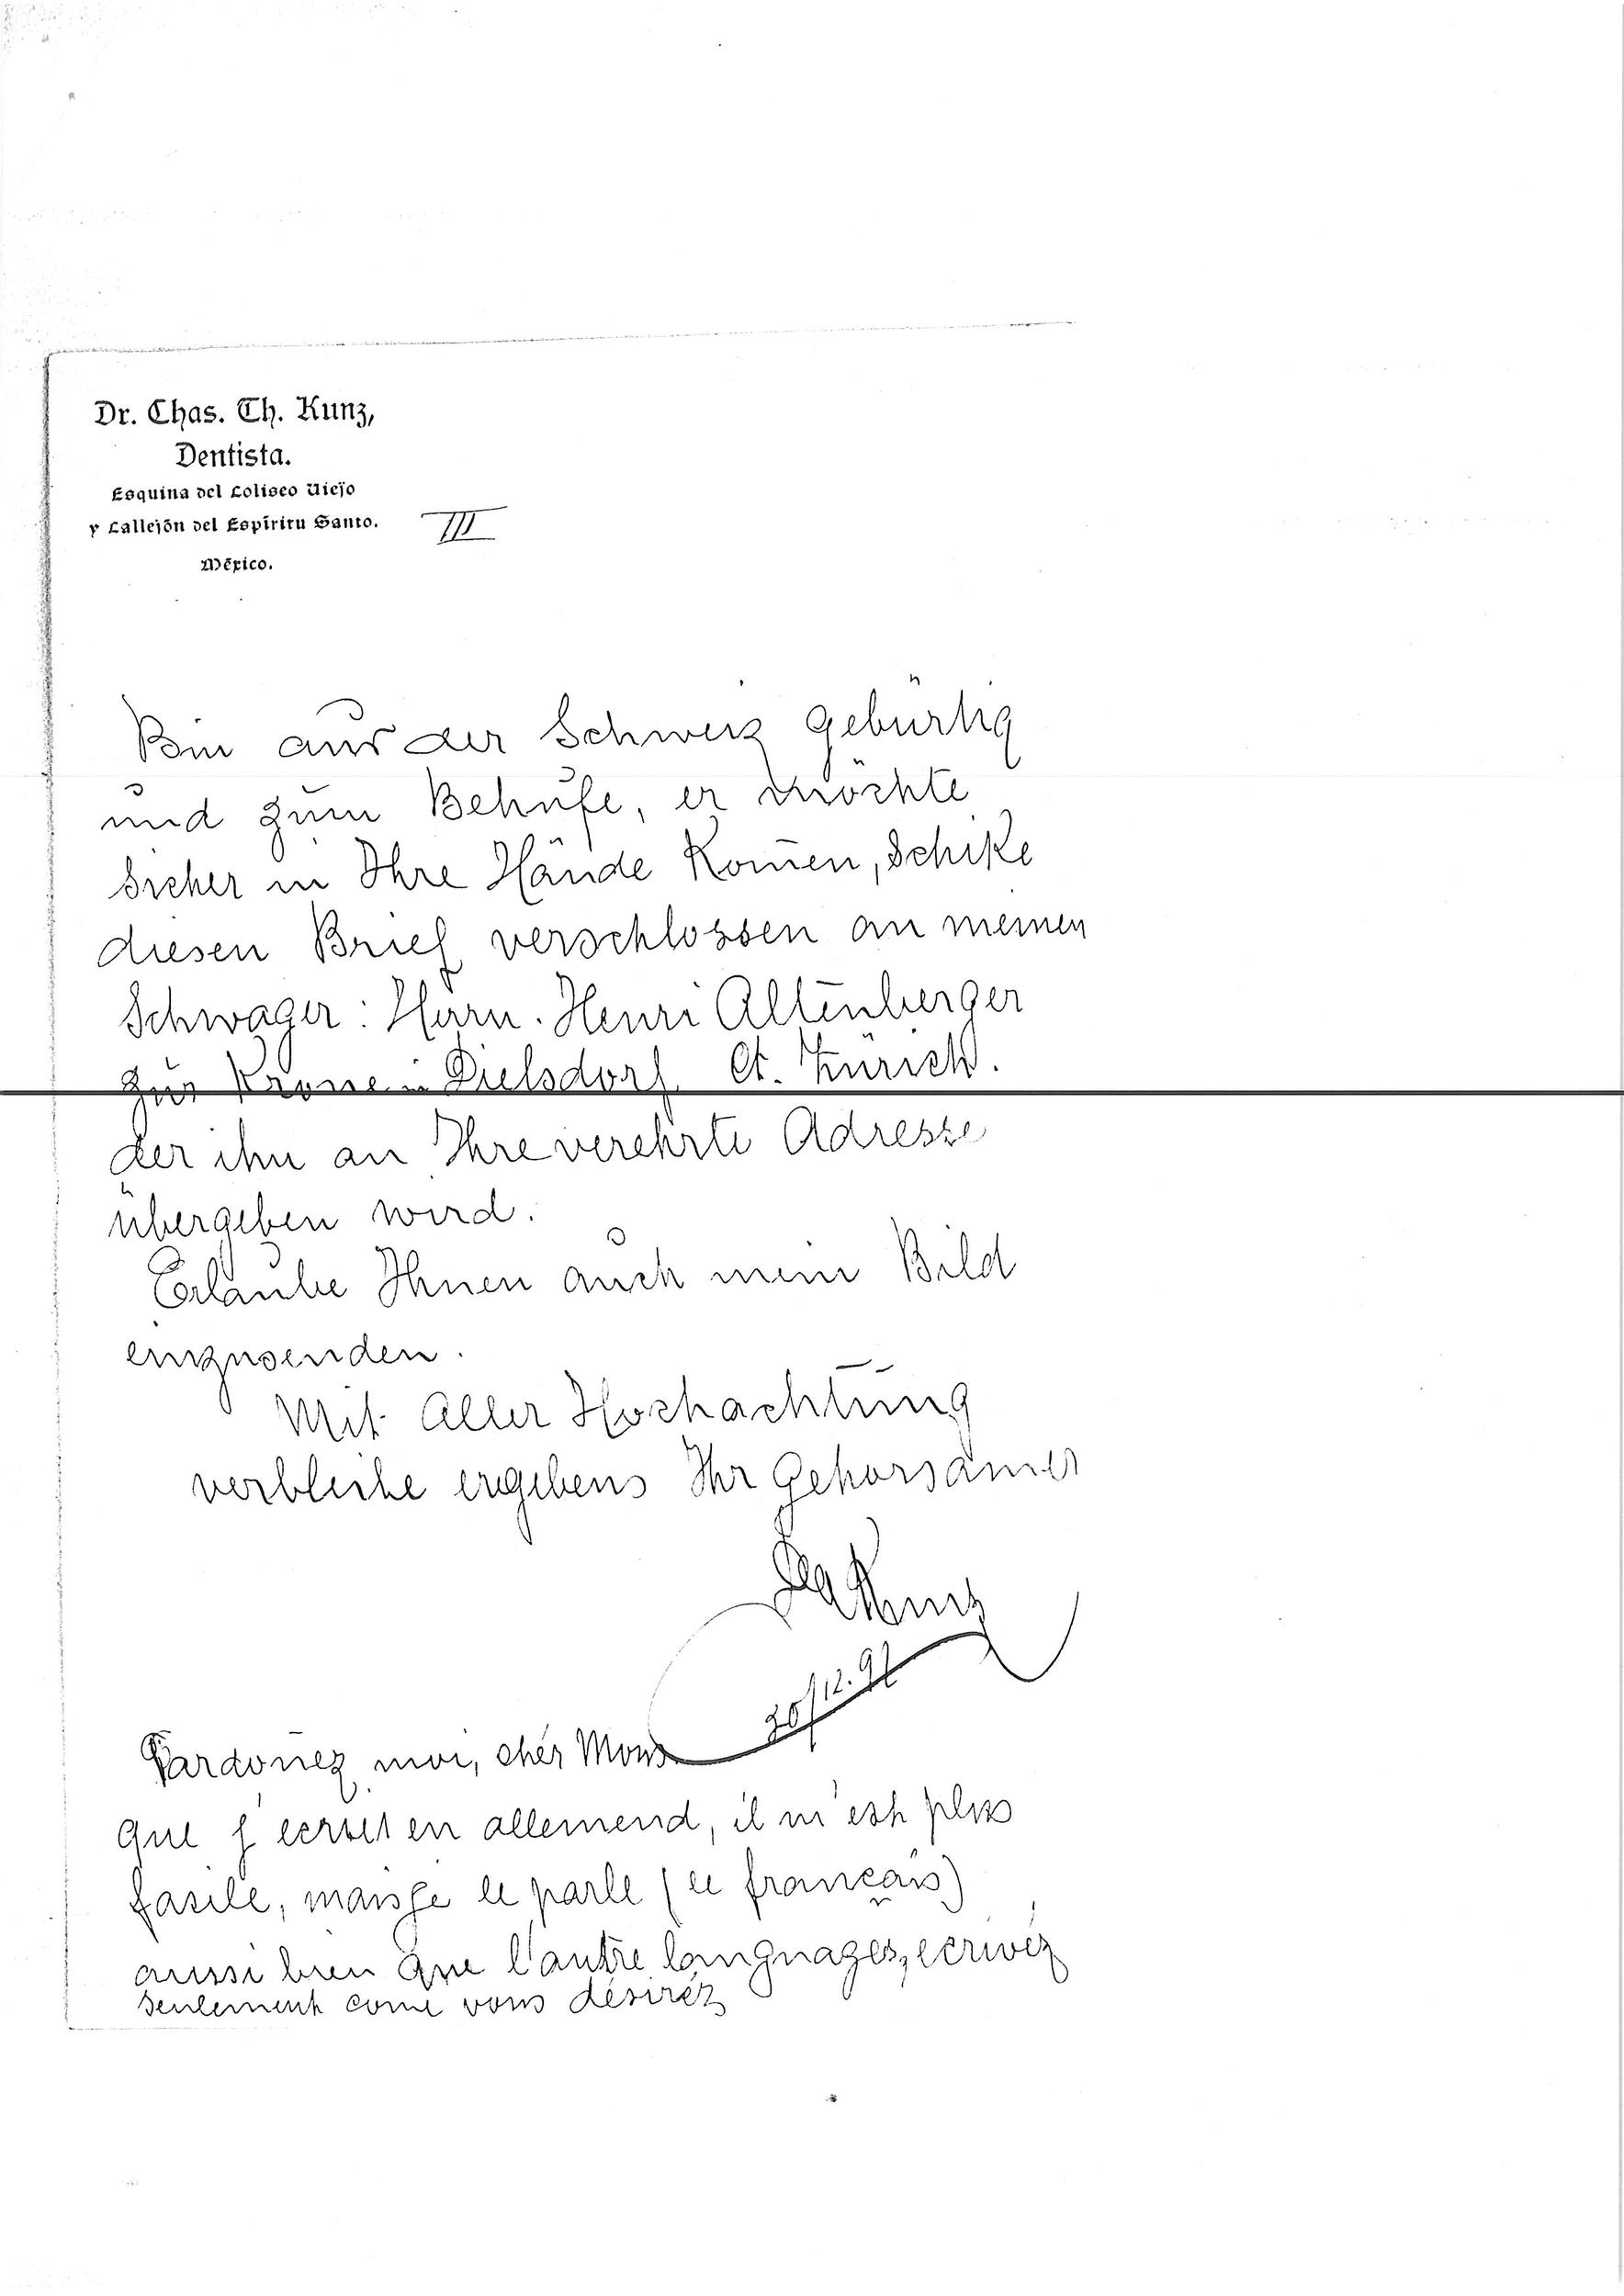 Dr. Chas. Th. Kunz,
Dentista.
Esquina del Coliseo Viejo
y Callejón del Espíritu Santo.
México.
III
Bin aus der Schweiz gebürtig
und zum Behufe, er möchte
sicher in Ihre Hände kom̄en, schike
diesen Brief verschlossen an meinen
Schwager: Herrn. Henri Altenberger
zur Krone in Dielsdorf Ct. Zürich.
der ihn an Ihre verehrte Adresse
übergeben wird.
Erlaube Ihnen auch mein Bild
einzusenden.
Mit Aller Hochachtung
verbleibe ergebens Ihr Gehorsamer
Kunz
12.
Pardon̄ez moi, cher Mons
que j'ecrives en allemend, il m'est plus
fasile, mais je le parle (le français)
aussi bien que l'autre languages, ecrivéz
seulement come vous désiréz